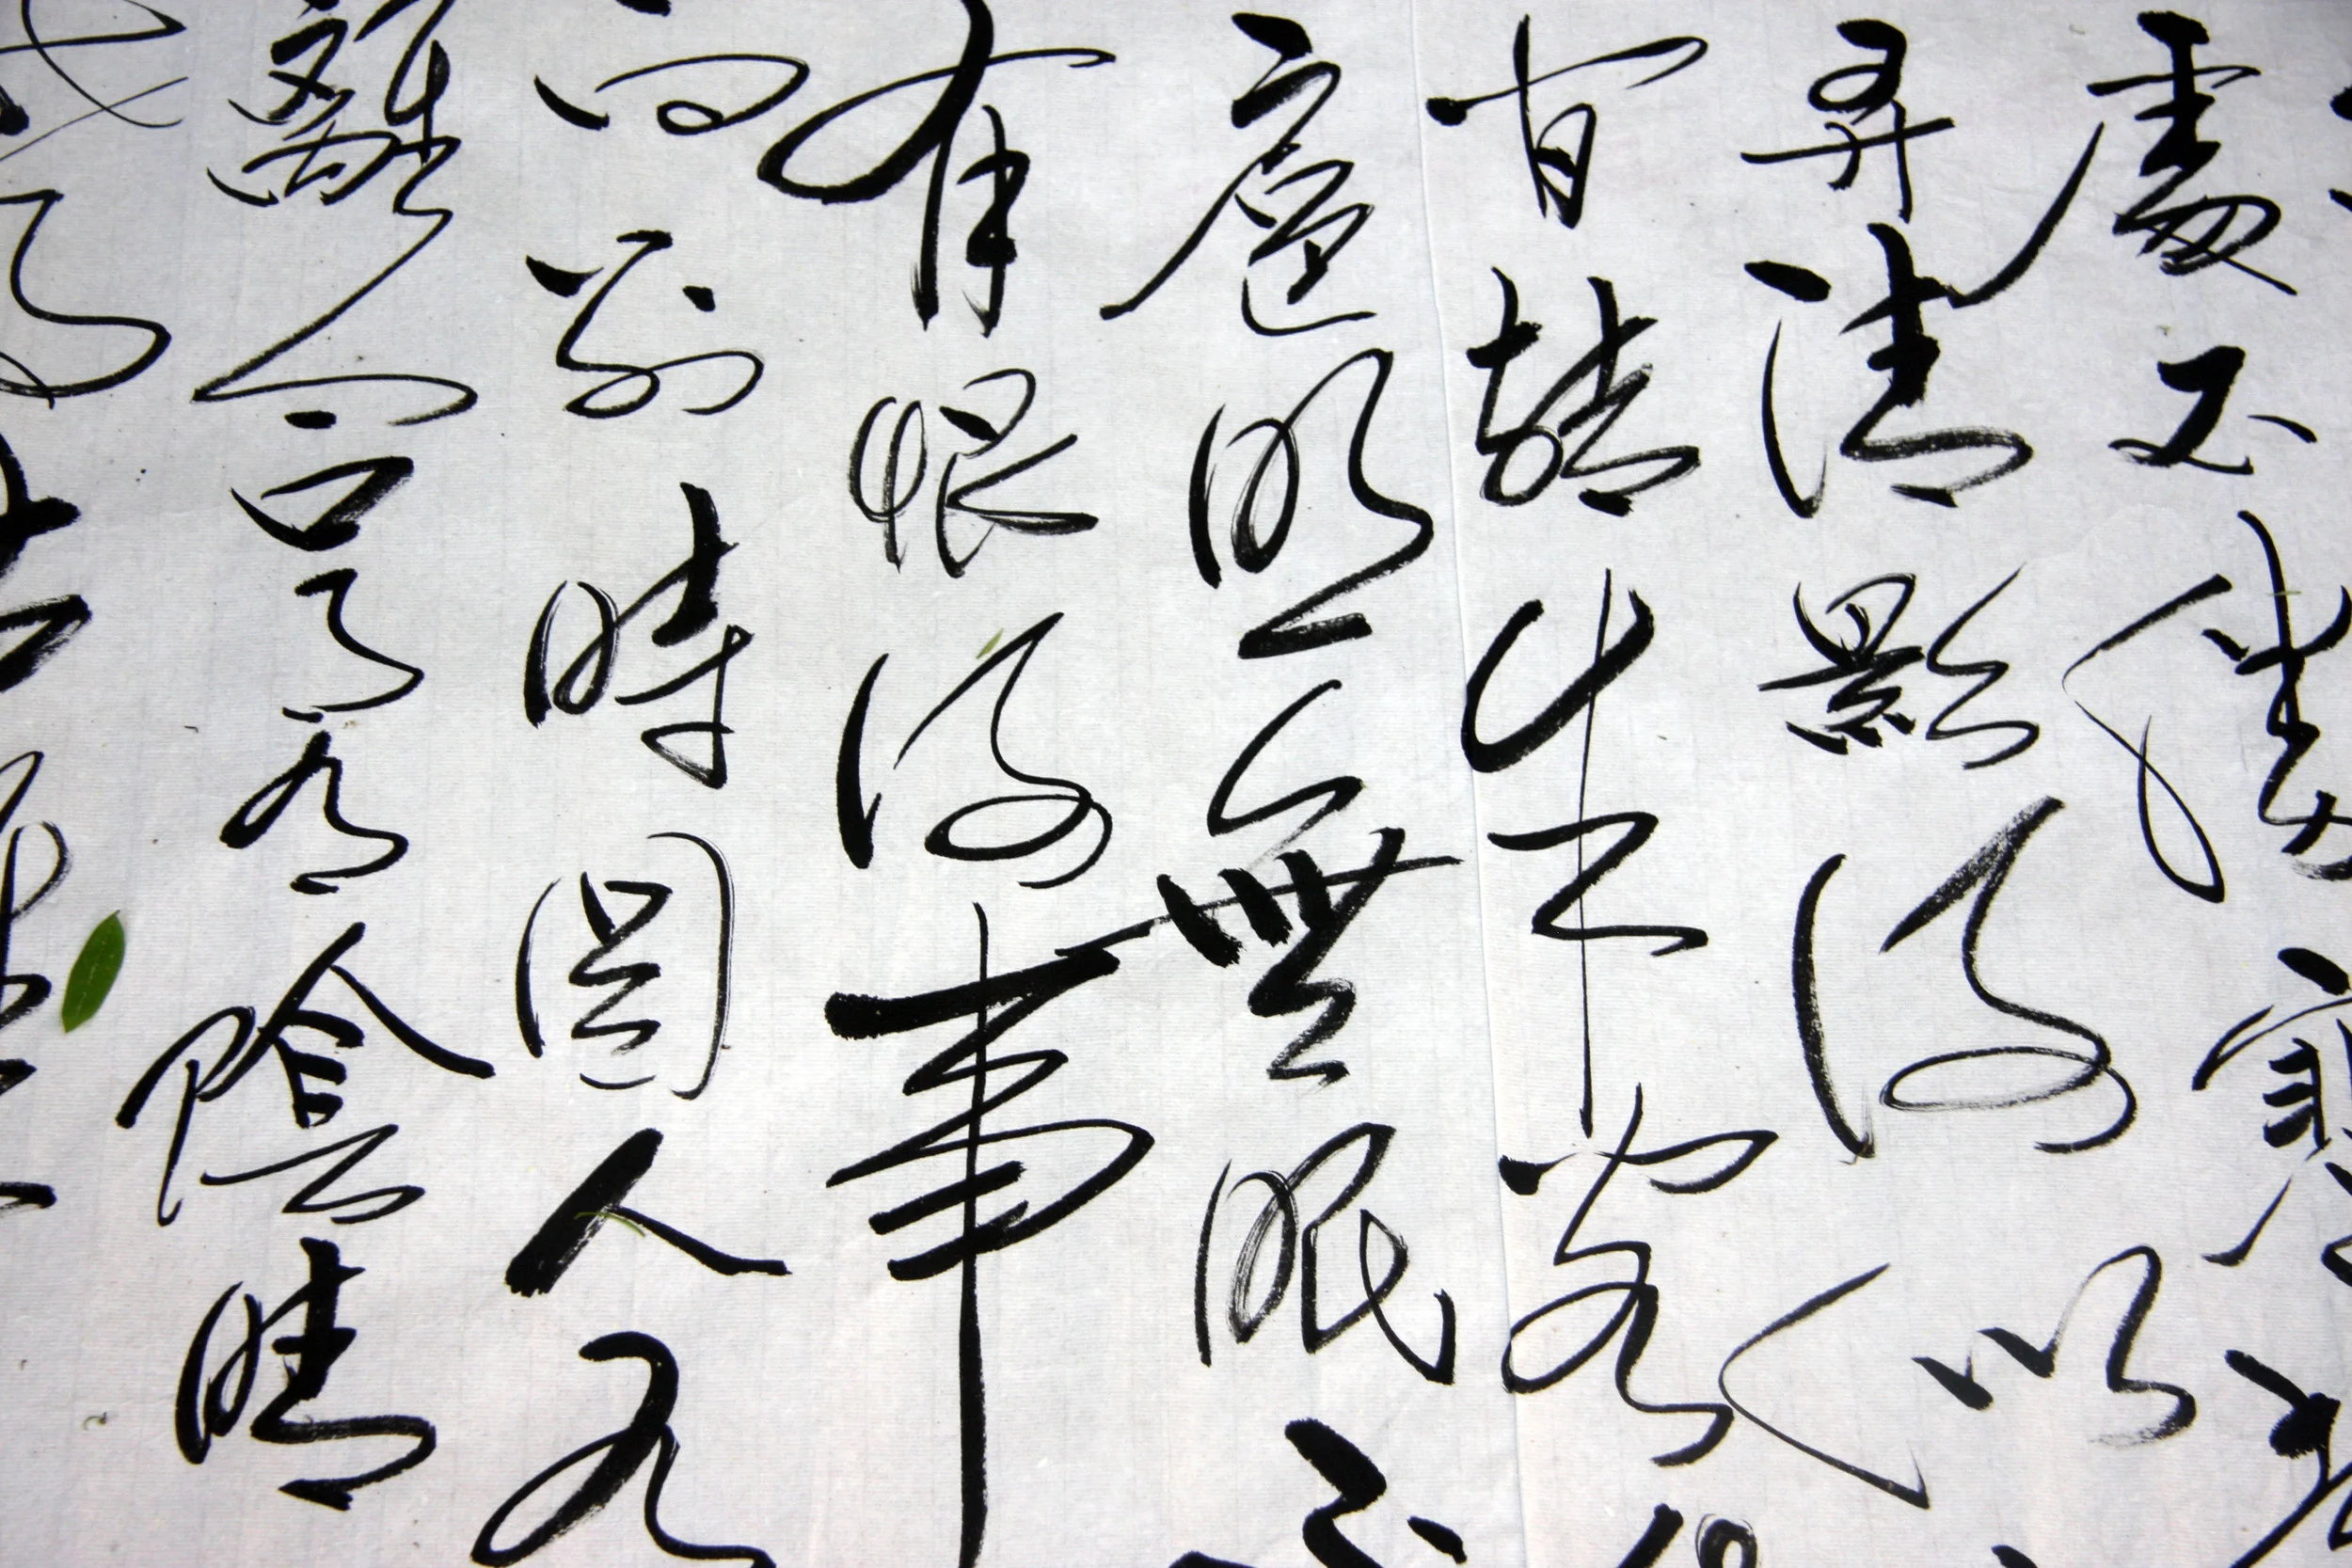 處不勝寒
弄清影何似
間轉朱閣
扈照無眠不
有恨何事
向別時圓人有
離合月有陰晴